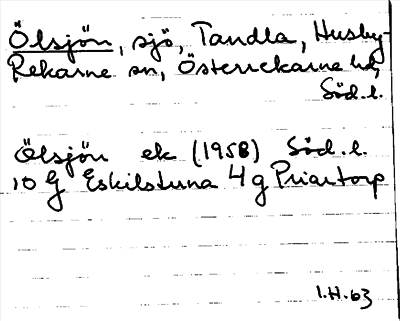 Ölsjön, sjö, Tandla, Husby-
Rekarne sn, Österrekarne hd,
Söd.l.
Ölsjön ek (1958) Söd.l.
10 G Eskilstuna 4 g Priortorp
I.H.63